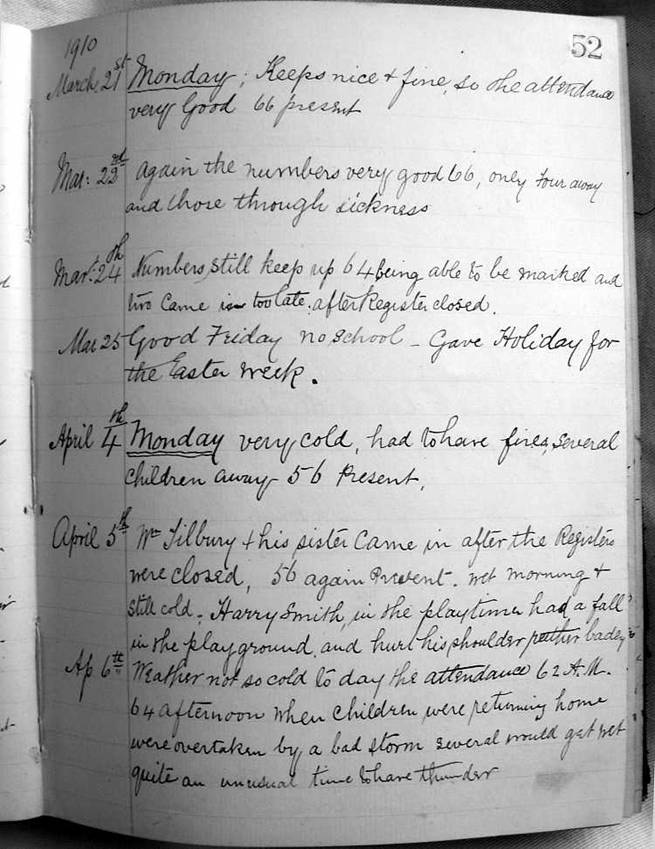 1910
52
March 21st Monday; Keeps nice & fine, so the attendance
very Good 66 present
Mar: 22nd Again the numbers very good 66, only four away
and those through sickness
Mar: 24th Numbers still keep up 64 being able to be marked and
two came in too late, after Register closed.
Mar 25 Good Friday no school - Gave Holiday for
the Easter week.
April 4th Monday very cold, had to have fires, several
children away 56 Present,
April 5th Wm Tilbury & his sister came in after the Registers
were closed, 56 again Present. wet morning &
still cold. Harry Smith, in the playtime had a fall
in the playground, and hurt his shoulder rather badly
Ap. 6th Weather not so cold to day the attendance 62 A.M.
64 afternoon when children were returning home
were overtaken by a bad storm several would get wet
quite an unusual time to have thunder